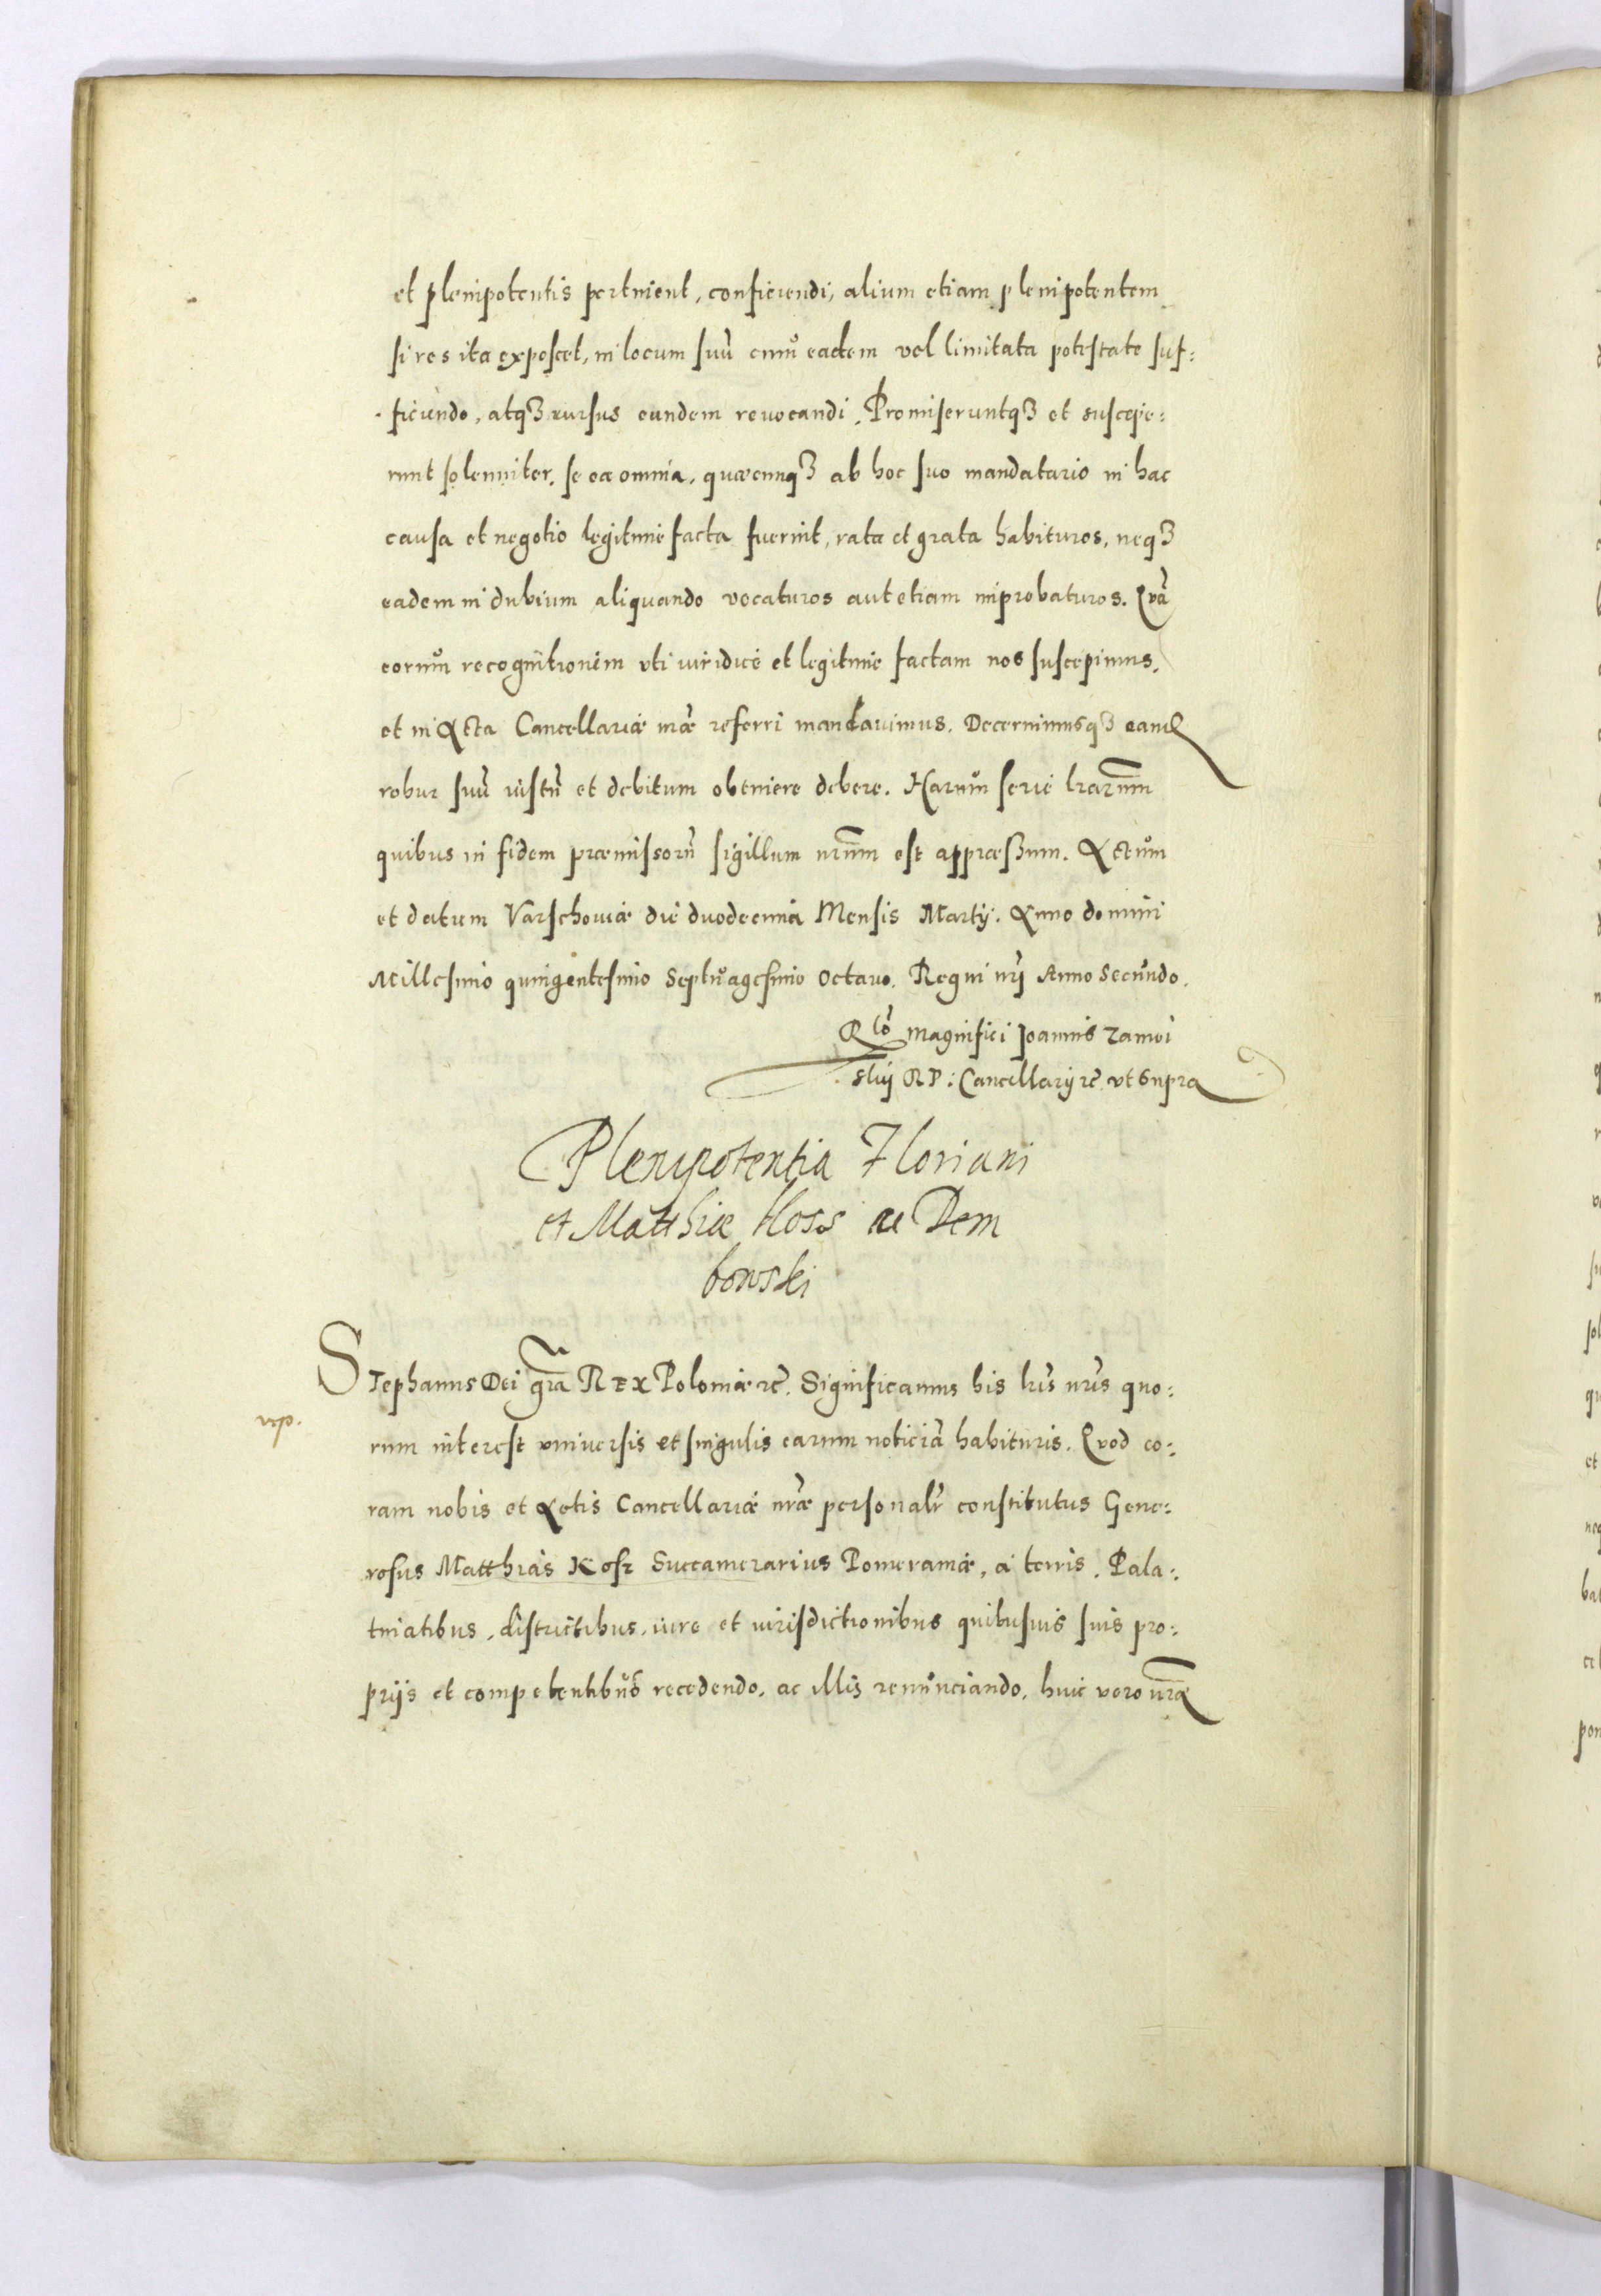 et plenipotentis pertinent, conficiendi, alium etiam plenipotentem
si res ita exposcet, in locum suū cum eadem vel limitata potestate suf:
ficiendo, atqȝ rursus eundem revocandi. Promiseruntqȝ et suscepe:
runt solenniter, se ea omnia, quæcunqȝ ab hoc suo mandatario in hac
causa et negotio legitime facta fuerint, rata et grata habituros, neqȝ
eadem in dubium aliquando vocaturos aut etiam improbaturos. Qvā
eorum recognitionem vti iuridicè et legitimè factam nos suscepimus,
et in Acta Cancellariæ nræ referri mandavimus. Decernimusqȝ eand
robur suū iustū et debitum obtinere debere. Harum serie lrarum
quibus in fidem præmissorū sigillum nrum est appræssum. Actum
et datum Varschoviæ die duodecima Mensis Martij. Anno domini
Millesimo quingentesimo Septuagesimo Octavo. Regni nrj Anno Secundo.
Rlō Magnifici Joannis Zamoi
skij RP: Cancellarij rc̄ vt supra
Plenipotentia Floriani
et Matthiæ Koss ac Dem
bowski
Stephanus Dei gra Rex Poloniæ rc̄. Significamus his lris nris quo:
rum interest vniversis et singulis earum noticiā habituris. Qvod co:
ram nobis et Actis Cancellariæ nræ personalr constitutus Gene:
rosus Matthias Kosz Succamerarius Pomeraniæ, à terris, Pala:
tinatibus, districtibus, iure et iurisdictionibus quibusvis suis pro:
prijs et competentibus recedendo, ac illis renunciando, huic vero nræ